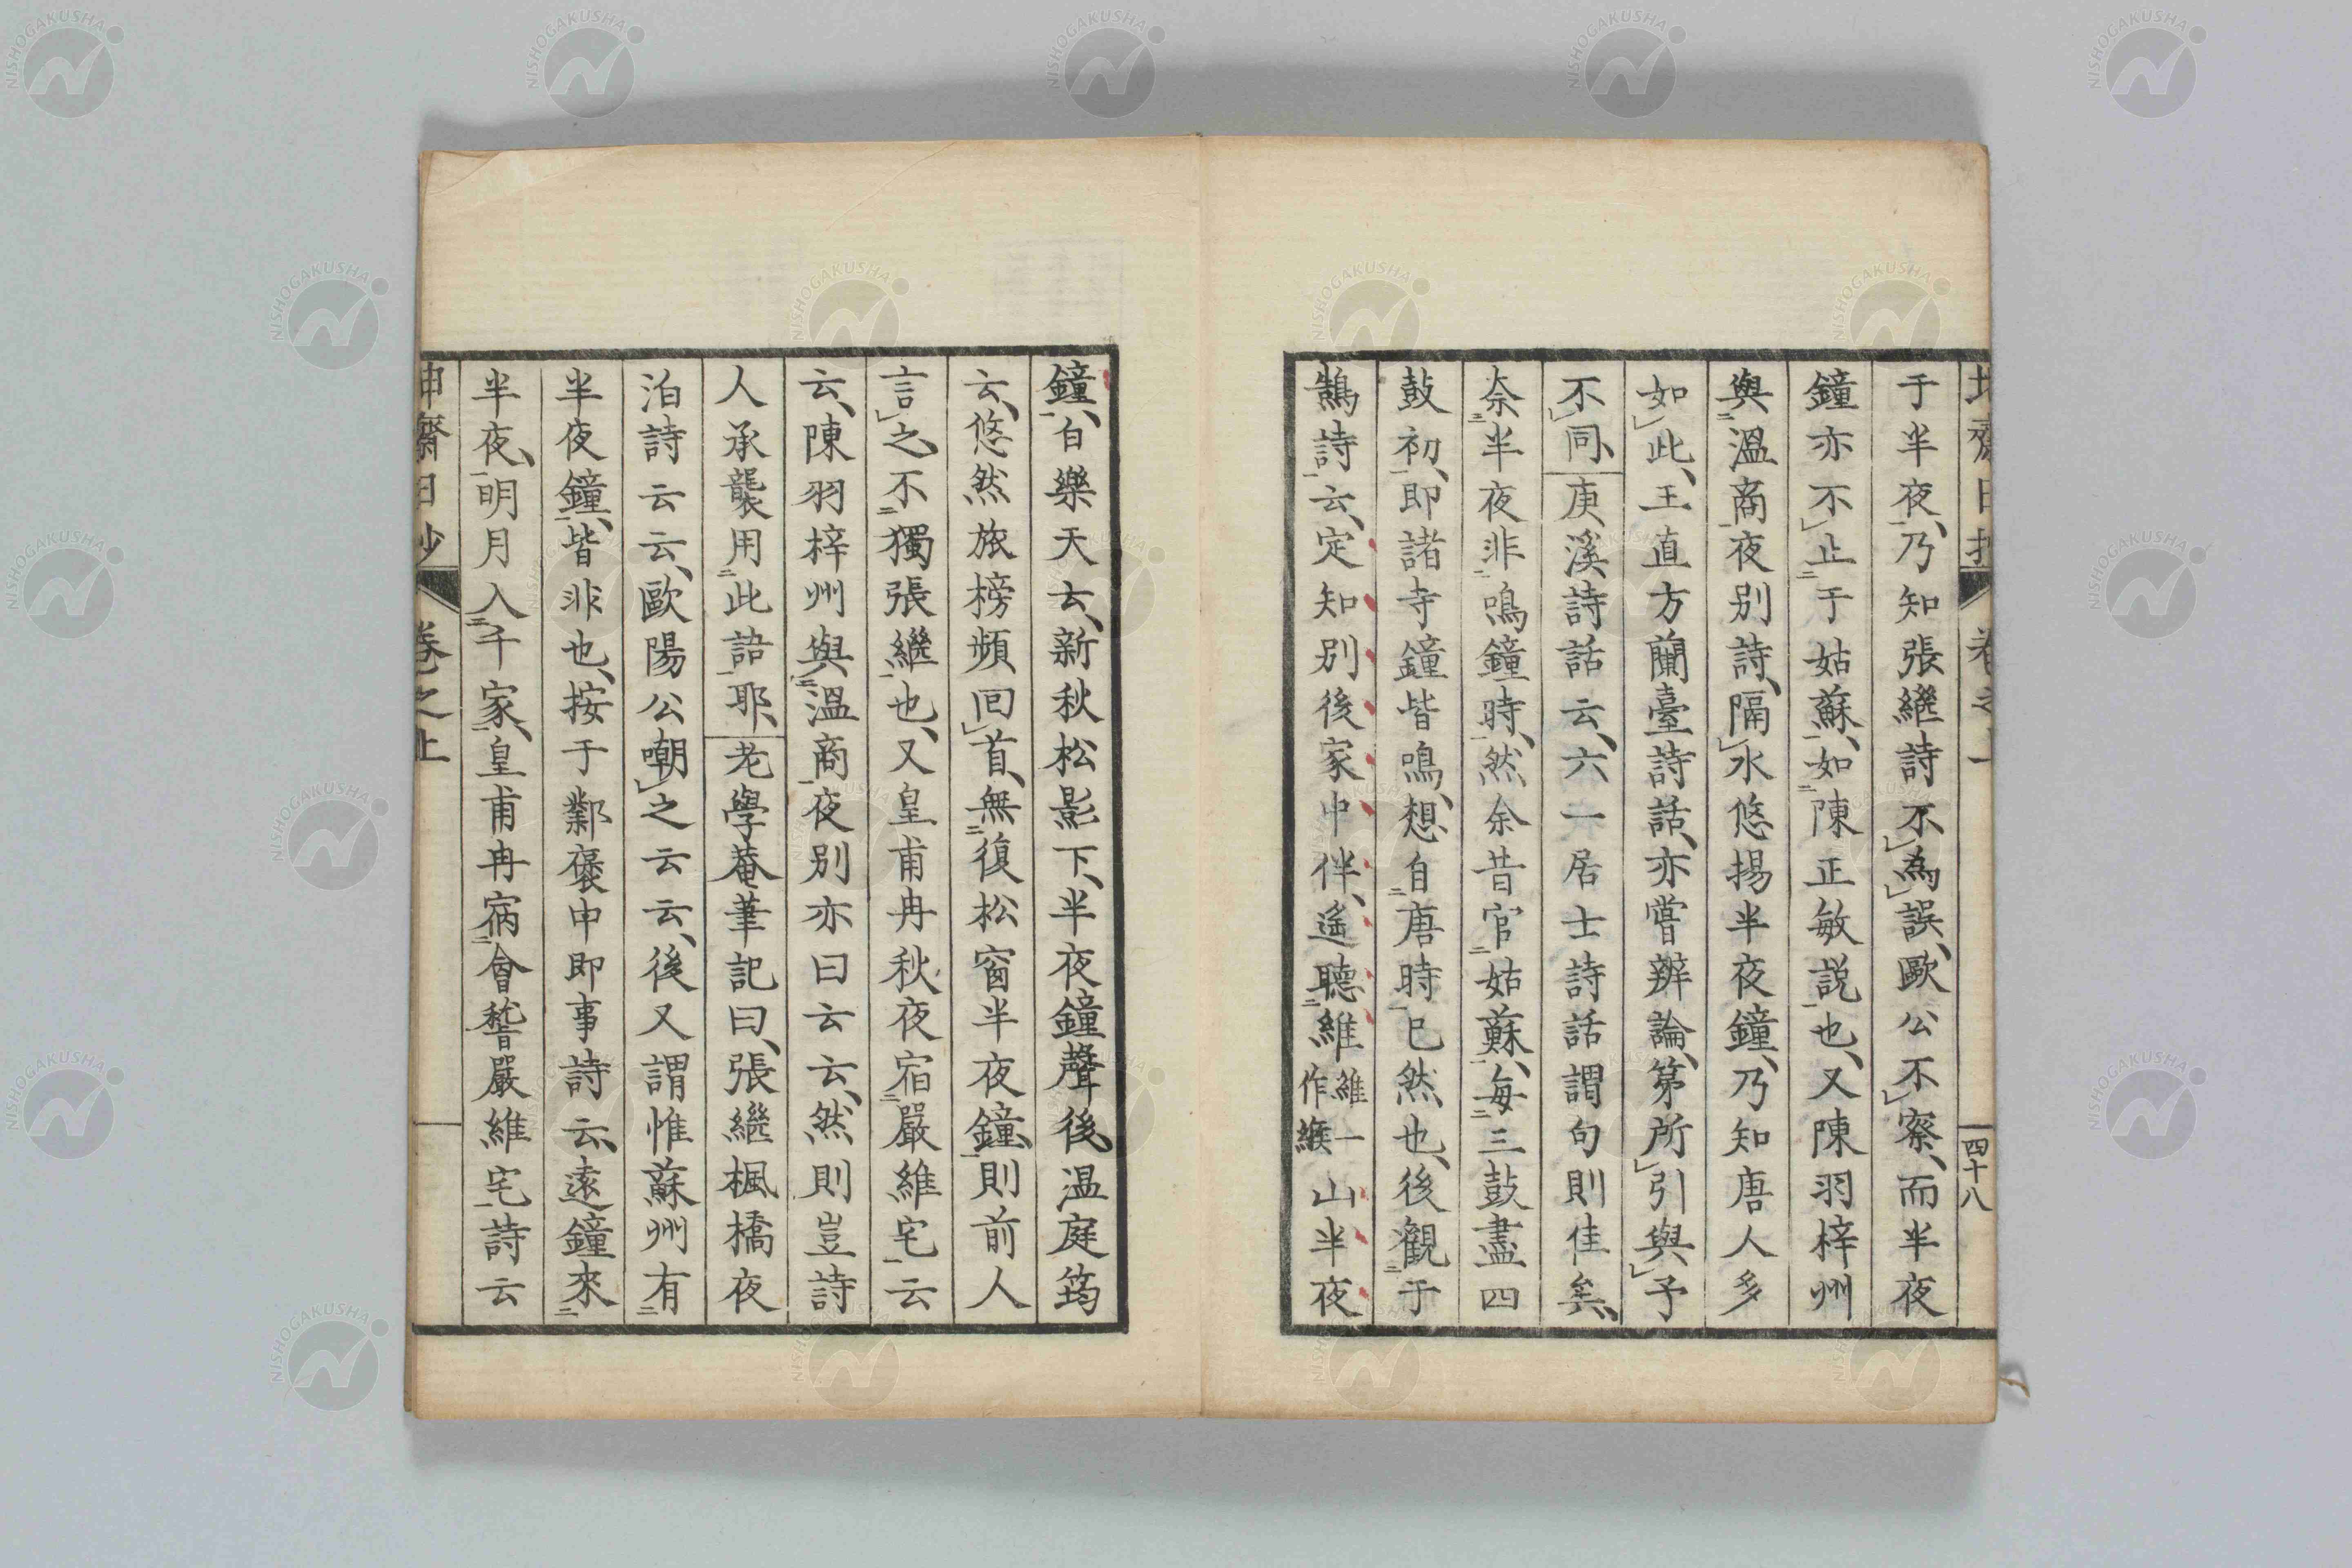 于半夜、乃知張繼詩不為誤、歐公不察、而半夜
鐘亦不止于姑蘇、如陳正敏説也、又陳羽梓州
與溫商夜別詩、隔水悠揚半夜鐘、乃知唐人多
如此、王直方蘭臺詩話、亦嘗辨論、第所引與予
不同、庚溪詩話云、六一居士詩話謂句則佳矣、
奈半夜非鳴鐘時、然余昔官姑蘇、每三鼓盡四
鼓初、即諸寺鐘皆鳴、想自唐時已然也、後觀于
鵠詩云、定知別後家中伴、遙聽維維一作緱山半夜
四十八
鐘、白樂天云、新秋松影下、半夜鐘聲後、温庭筠
云、悠然旅榜頻回首、無復松窗半夜鐘、則前人
言之、不獨張繼也、又皇甫冉秋夜宿嚴維宅云
云、陳羽梓州與溫商夜別亦曰云云、然則豈詩
人承襲用此語耶、老學菴筆記曰、張繼楓橋夜
泊詩云云、歐陽公嘲之云云、後又謂惟蘇州有
半夜鐘、皆非也、按于鄴褒中即事詩云、遠鐘來
半夜、明月入千家、皇甫冉宿會稽嚴維宅詩云
卷之上
NISHOGAKUSHA